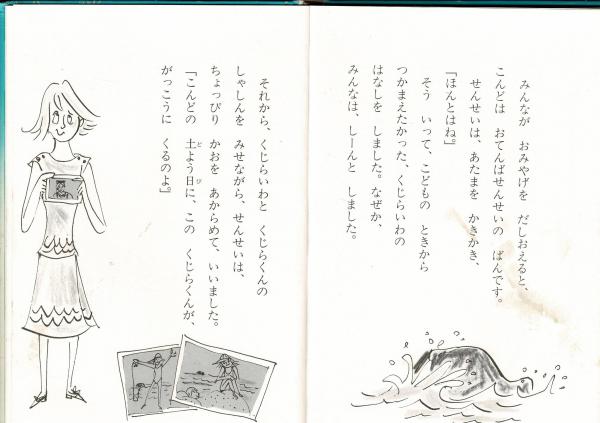 みんなが　おみやげを　だしおえると、
こんどは　おてんばせんせいの　ばんです。
せんせいは、あたまを　かきかき、
『ほんとはね。』
そう　いって、こどもの　ときから
つかまえたかった、くじらいわの
はなしを　しました。なぜか、
みんなは、しーんと　しました。
それから、くじらいわと　くじらくんの
しゃしんを　みせながら、せんせいは、
ちょっぴり　かおを　あからめて、いいました。
『こんどの　土よう日に、この　くじらくんが、
がっこうに　くるのよ。』